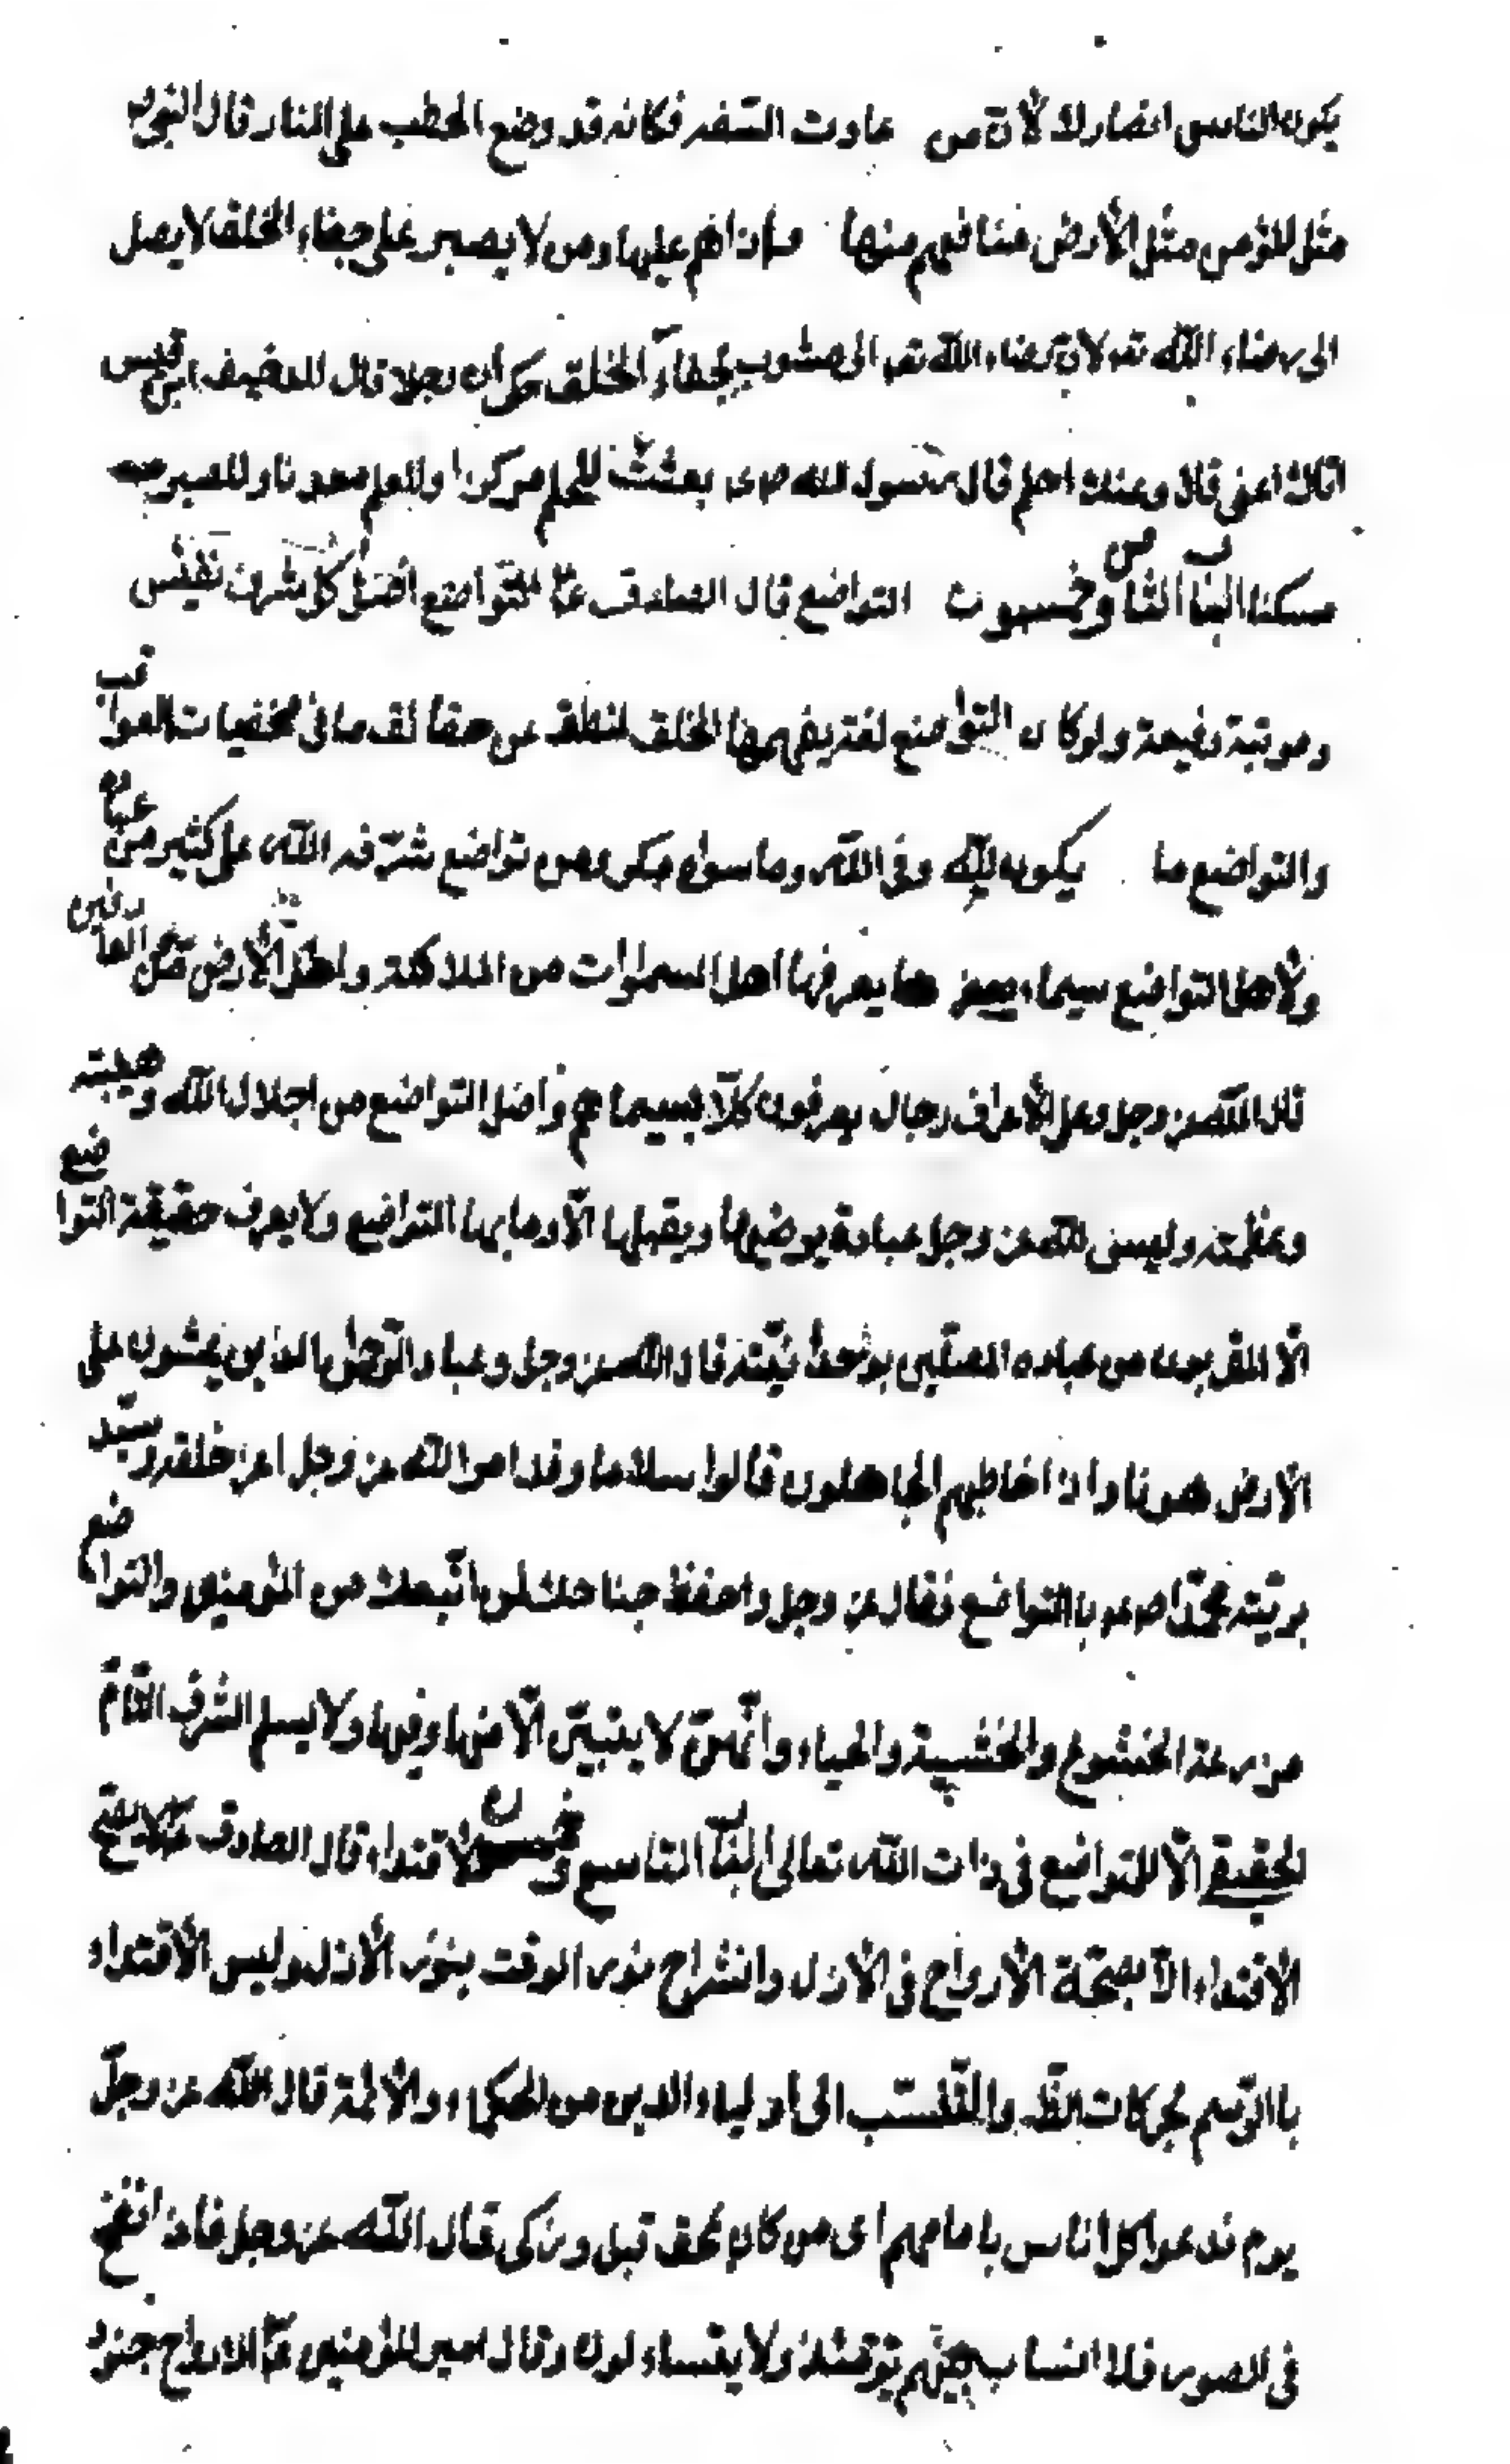 يكون الناس انصارك لأن من حارب السفيه فكانه قد وضع الحطب على النار قال النبى ص
مثل المؤمن مثل الأرض منافعهم منها واذاهم عليها ومن لا يصبر على جفاء الخلق لا يصل
الى رضاء الله تعـ لان رضاء الله تعـ مشوب بجفاء الخلق حكى ان رجلا قال للاحنف ابن قيس
اياك اعنى قال وعنك احلم قال رسول الله ص بعثت للحلم مركزا وللعلم معدنا وللصبر
مسكنا الباب الثامن وخمسون التواضع قال الصادق ع التواضع اصل كل شرف نفيس
ومرتبة رفيعة ولو كان التواضع لغة يفهمها الخلق لنطق عن حقائق ما فى مخفيات العواقب
والتواضع ما يكون لله وفى الله وما سواه مكر ومن تواضع شرفه الله على كثير من عباده
ولأهل التواضع سيماء يعرفها اهل السموات من الملائكة واهل الأرض من العارفين
قال الله عز وجل وعلى الأعراف رجال يعرفون كلا بسيماهم واصل التواضع من اجلال الله وهيبته
وعظمته وليس لله عز وجل عبادة يرضيها ويقبلها الا وبابها التواضع ولا يعرف حقيقة التواضع
الا المقربون من عباده المتصلين بوحدانيته قال الله عز وجل وعباد الرحمن الذين يمشون على
الأرض هونا واذا خاطبهم الجاهلون قالوا سلاما وقد امر الله عز وجل اعز خلقه وسيد
بريته محمدا ص بالتواضع فقال عز وجل واخفض جناحك لمن اتبعك من المؤمنين والتواضع
مزرعة الخشوع والخشية والحياء وانهن لا يتبين الا منها وفيها ولا يسلم الشرف التام
الحقيقى الا للتواضع فى ذات الله تعالى الباب التاسع وخمسون الاقتداء قال الصادق ع لا يصح
الأقتداء الا بصحة الأرواح فى الأزل وانشراح نور الوقت بنور الأزل وليس الأقتداء
بالتوسم بحركات الظـ والتنسب الى اولياء الدين من الحكماء والأئمة قال الله عز وجل
يوم ندعوا كل اناس بامامهم اى من كان بمحق قبل وزكى قال الله عز وجل فاذا نفخ
فى الصور فلا انساب بينهم يومئذ ولا يتساءلون وقال امير المؤمنين ع الارواح جنود